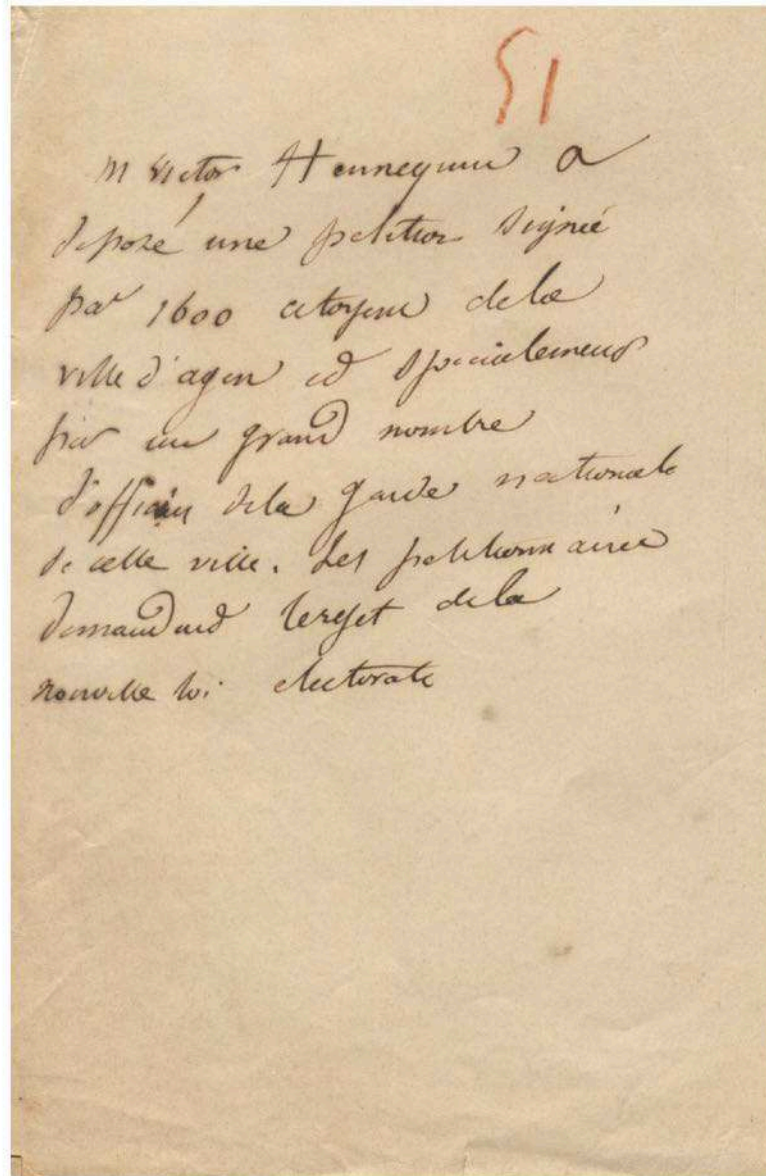 51
M Victor Hennequin a
deposé une petition signée
par 1600 citoyens de la
ville d'agen et specialement
par un grand nombre
d'officiers de la garde nationale
de cette ville. Les petitionnaires
demandent le rejet de la
nouvelle loi electorale